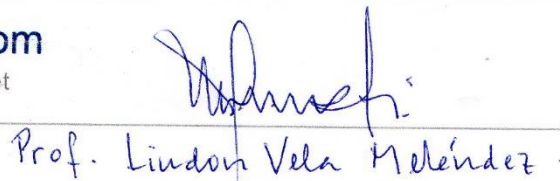 om
et
Prof. Lindon Vela Meléndez